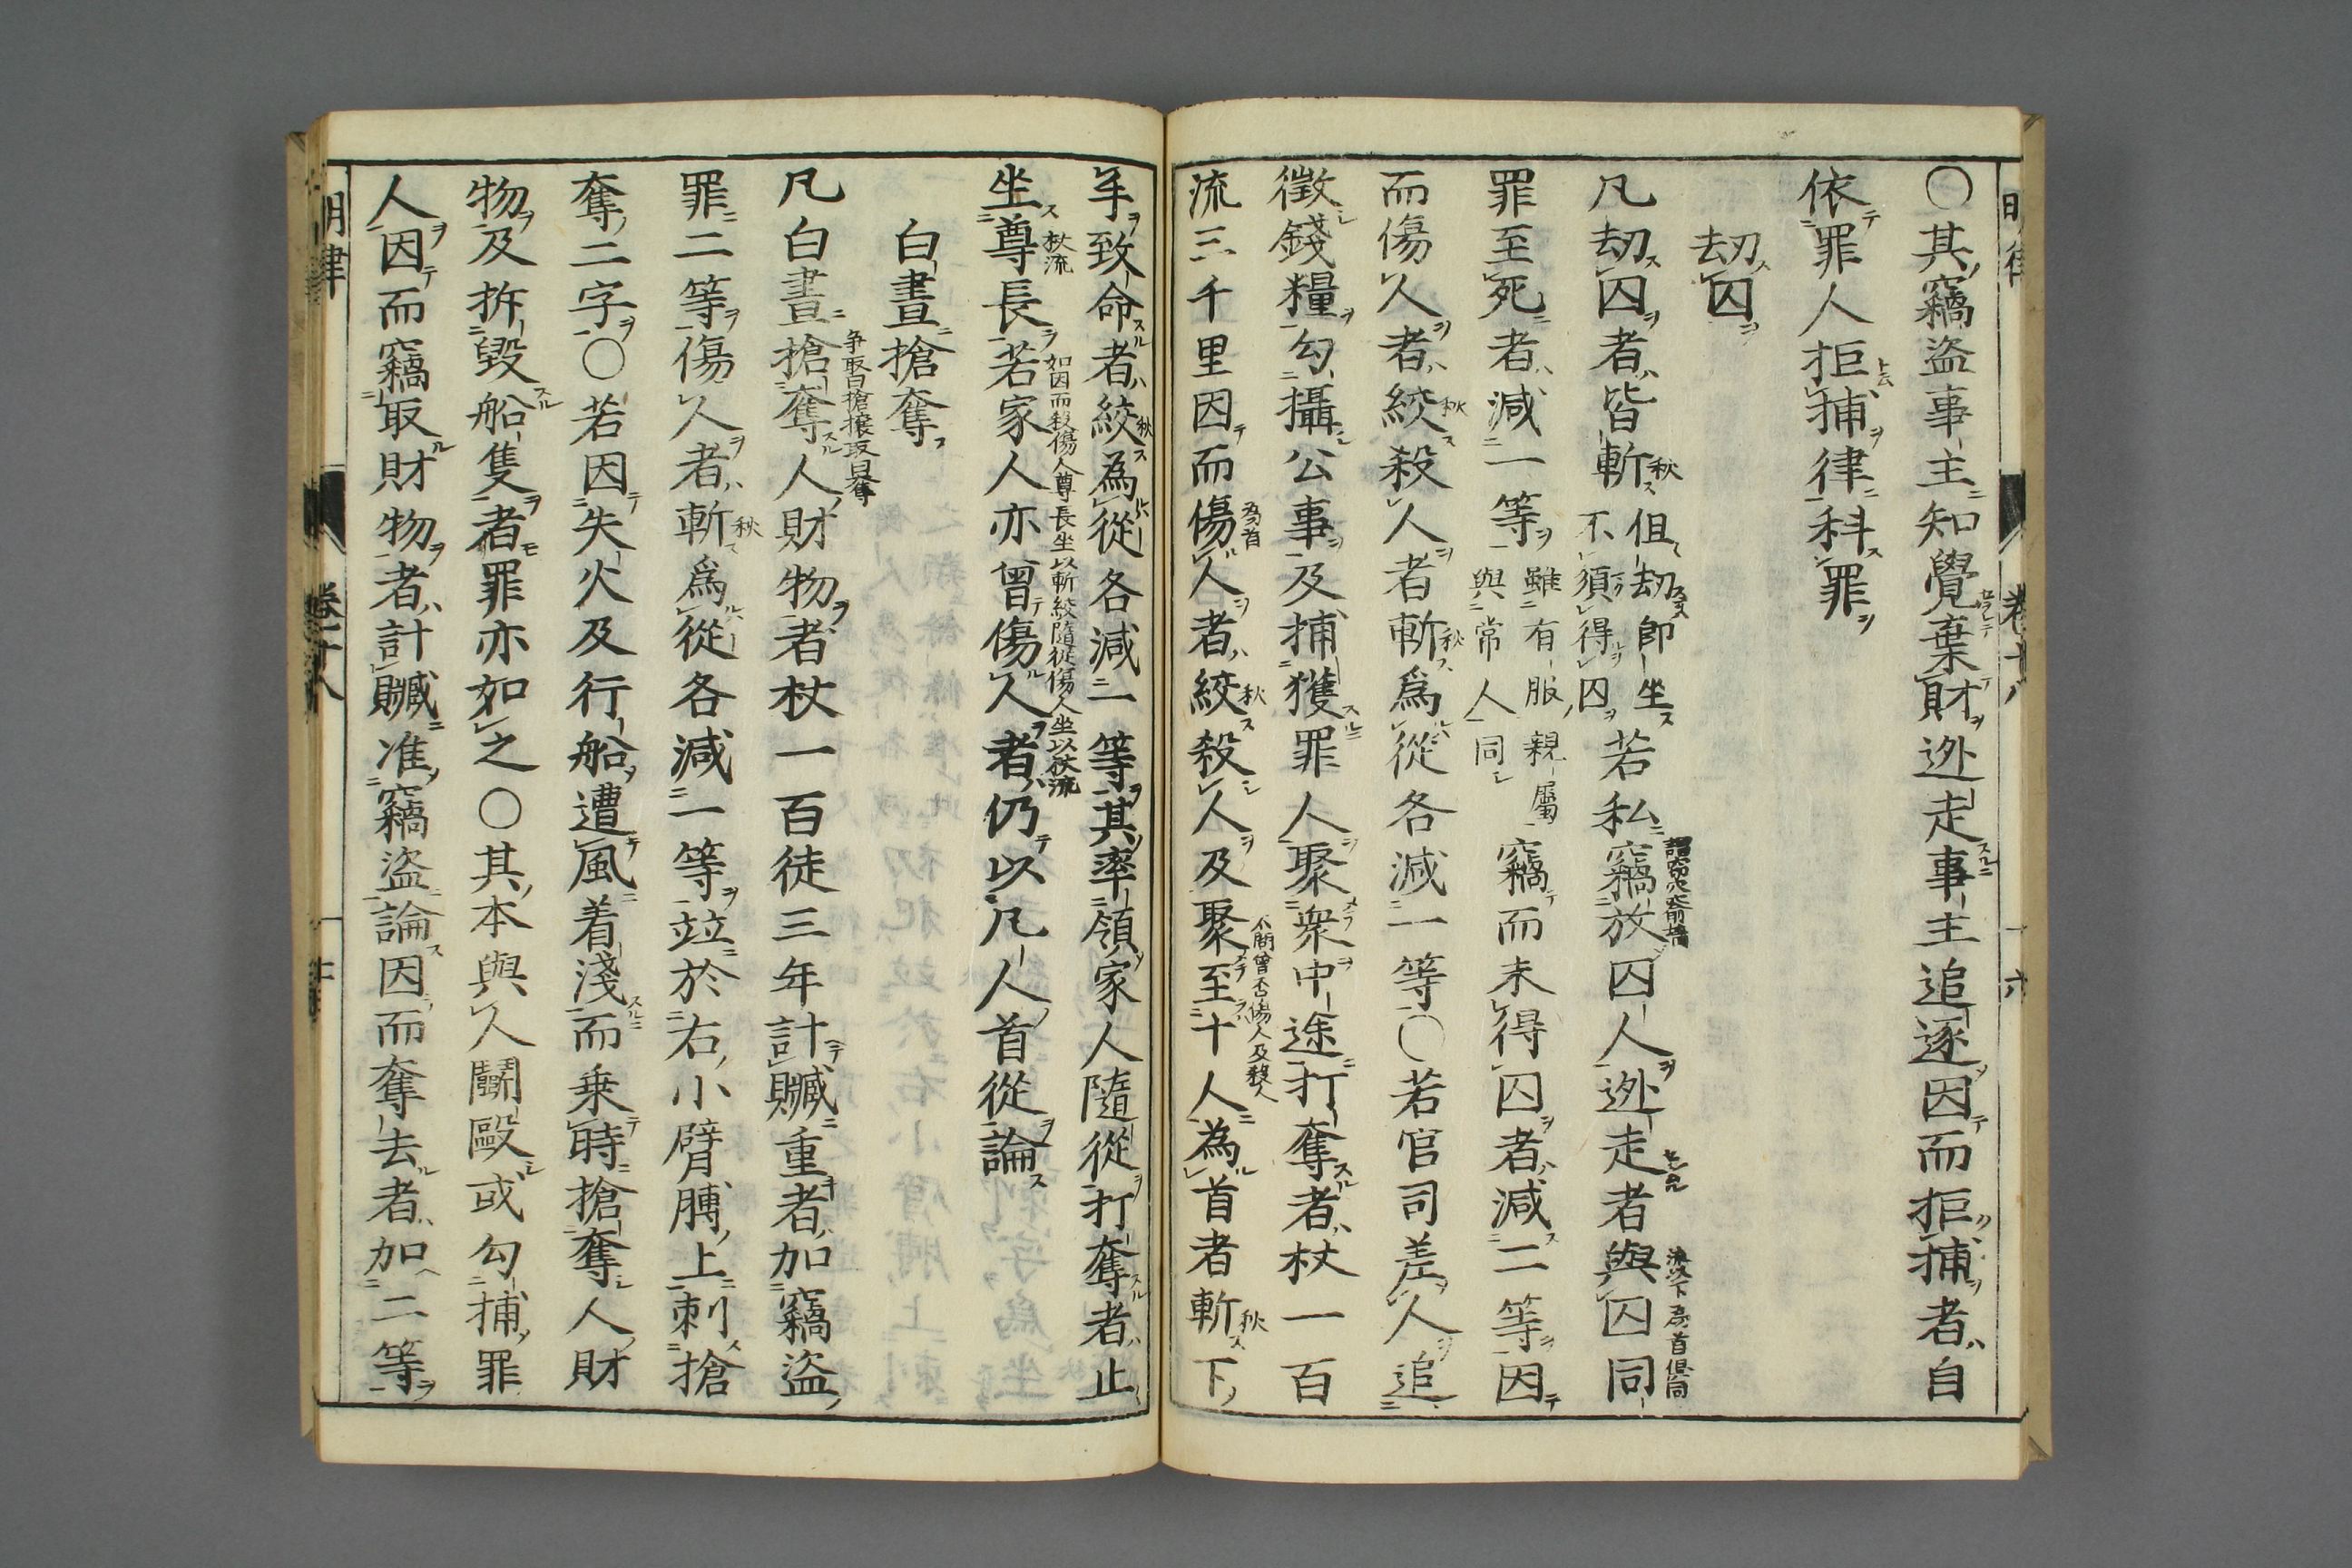 〇其竊盜事主知覺棄財逃走事主追逐因而拒捕者自
依罪人拒捕律科罪
劫囚
凡劫囚者皆斬但劫即坐不須得囚若私竊放囚人逃走者與囚同
罪至死者減一等雖有服親屬與常人同竊而未得囚者減二等因
而傷人者絞殺人者斬爲從各減一等〇若官司差人追
徵錢糧勾攝公事及捕獲罪人聚衆中途打奪者杖一百
流三千里因而傷人者絞殺人及聚至十人為首者斬下
為首
不問曾否傷人及殺人
手致命者絞為從各減一等其率領家人隨從打奪者止
坐尊長若家人亦曾傷人者仍以凡人首從論
杖流
如因而殺傷人尊長坐以斬絞隨從傷人坐以杖流
白晝搶奪
凡白晝搶奪人財物者杖一百徒三年計贓重者加竊盜
爭取曰搶攘取曰奪
罪二等傷人者斬爲從各減一等竝於右小臂膊上刺搶
奪二字〇若因失火及行船遭風着淺而乗時搶奪人財
物及拆毀船隻者罪亦如之〇其本與人鬭毆或勾捕罪
人因而竊取財物者計贓准竊盜論因而奪去者加二等